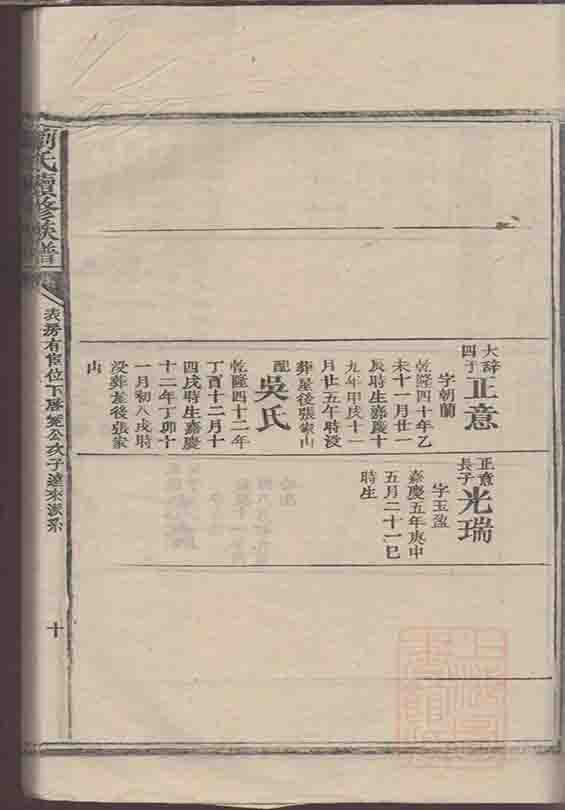 大辞四子
正意
字朝蘭
乾隆四十年乙
未十一月廿一
辰時生嘉慶十
九年甲戌十一
月廿五午時没
葬屋後張家山
配吳氏
乾隆四十二年
丁酉十二月十
四戌時生嘉慶
十二年丁卯十
一月初八戌時
没葬屋後張家
山
正意長子
光瑞
字玉盈
嘉慶五年庚申
五月二十一巳
時生
劉氏續修族譜
表房有宦位下
公次子達來派系
十